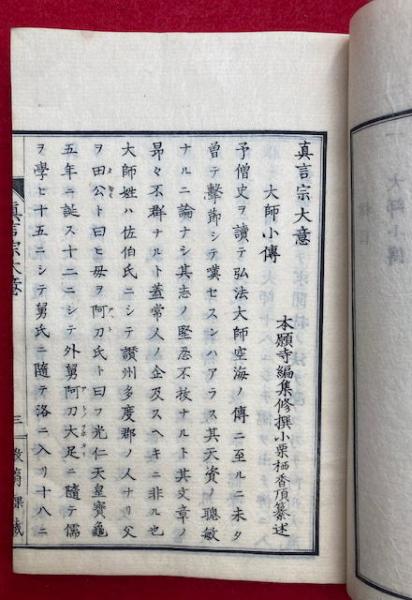 真言宗大意
本願寺編集修撰小栗栖香頂纂述
大師小傳
予僧史ヲ讀テ弘法大師空海ノ傳ニ至ルニ未タ
曾テ擊節シテ嘆セスンハアラス其天資ノ聰敏
ナルニ論ナシ其志ノ堅忍不拔ナルト其文章ノ
昂々不群ナルト蓋常人ノ企及スヘキニ非ル也
大師姓ハ佐伯氏ニシテ讃州多度郡ノ人ナリ父
ヲ田公ト曰ヒ母ヲ阿刀氏ト曰フ光仁天皇寶龜
五年ニ誕ス十二ニシテ外舅阿刀大足ニ隨テ儒
ヲ學ヒ十五ニシテ舅氏ニ隨テ洛ニ入リ十八ニ
真言宗大意
三
大師小傳